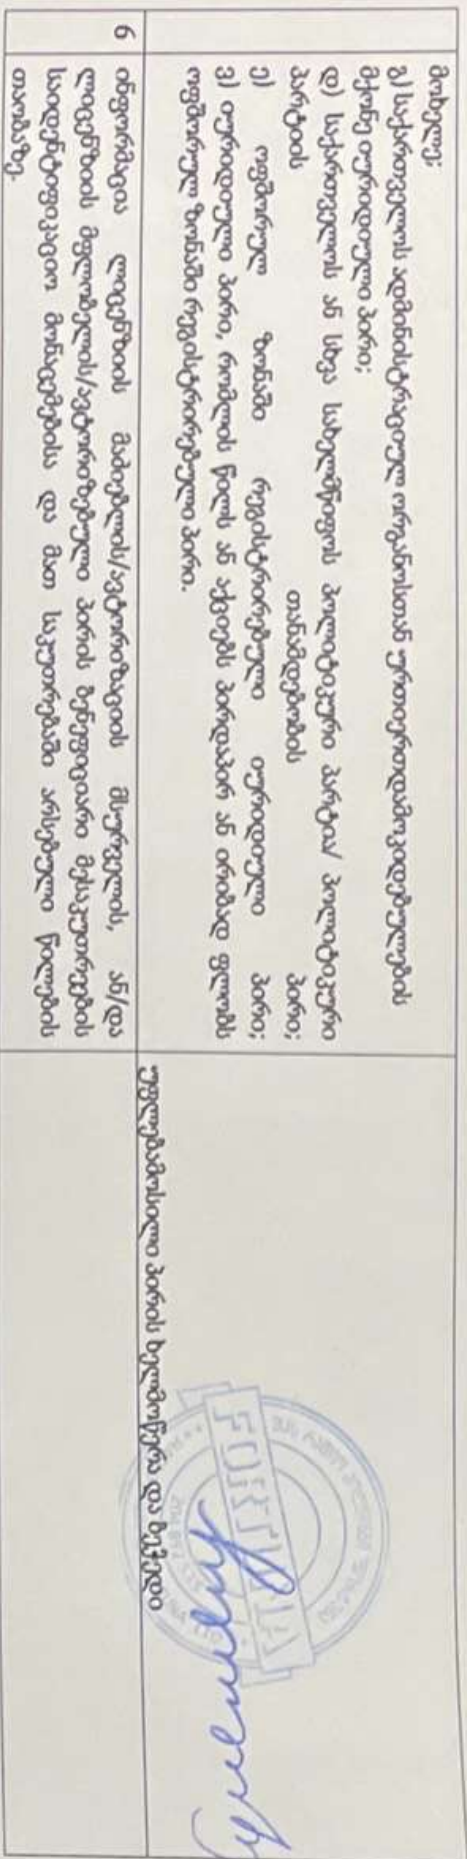 მოხელე;
გ) საქართველოს ადმინისტრაციულ ორგანოსთან ურთიერთდამოკიდებულების
მქონე იურიდიული პირი;
დ) საქართველოს ან სხვა სახელმწიფოს პოლიტიკური პარტია/ პოლიტიკური
პარტიის თანამდებობის პირი;
ე) ოფშორულ ზონაში რეგისტრირებული იურიდიული პირი;
ვ) იურიდიული პირი, რომლის წილს ან აქციებს პირდაპირ ან ირიბად ფლობს
ოფშორულ ზონაში რეგისტრირებული პირი.
6
ინფორმაცია ლიცენზიის მაძიებლის/ავტორიზაციის მსურველის, ან/და
ლიცენზიის მფლობელის/ავტორიზებული პირის ბენეფიციარი მესაკუთრეების
საიდენტიფიკაციო მონაცემებისა და მათ საკუთრებაში არსებული წილების
თაობაზე.
უფლებამოსილი პირის ხელმოწერა და ბეჭედი
FORTUNA